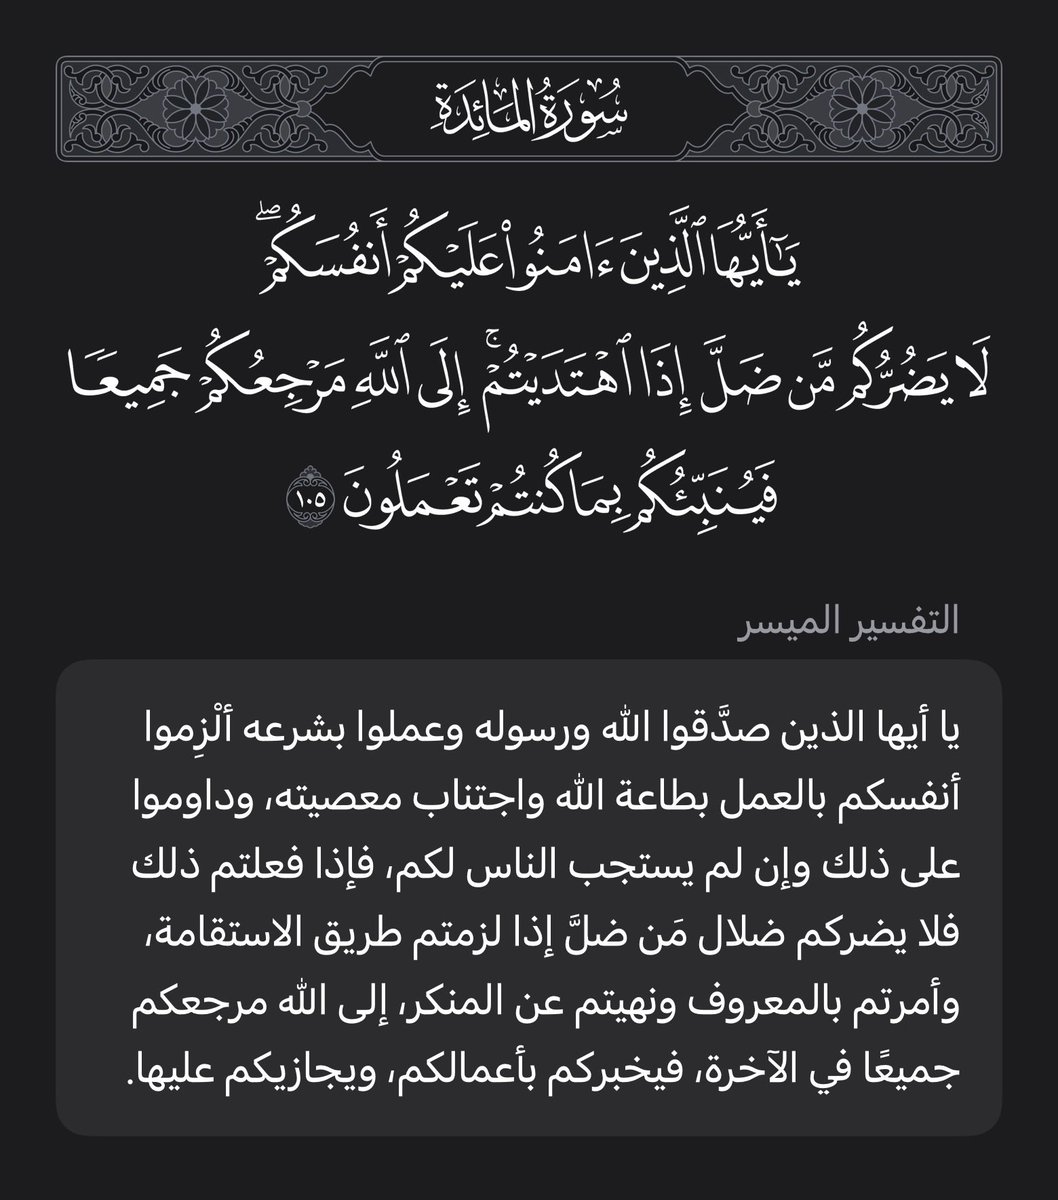 سُورَةُ المَائِدَةِ
يَٰٓأَيُّهَا ٱلَّذِينَ ءَامَنُواْ عَلَيۡكُمۡ أَنفُسَكُمۡۖ
لَا يَضُرُّكُم مَّن ضَلَّ إِذَا ٱهۡتَدَيۡتُمۡۚ إِلَى ٱللَّهِ مَرۡجِعُكُمۡ جَمِيعٗا
فَيُنَبِّئُكُم بِمَا كُنتُمۡ تَعۡمَلُونَ ١٠٥
التفسير الميسر
يا أيها الذين صدَّقوا الله ورسوله وعملوا بشرعه ألْزِموا
أنفسكم بالعمل بطاعة الله واجتناب معصيته، وداوموا
على ذلك وإن لم يستجب الناس لكم، فإذا فعلتم ذلك
فلا يضركم ضلال مَن ضلَّ إذا لزمتم طريق الاستقامة،
وأمرتم بالمعروف ونهيتم عن المنكر، إلى الله مرجعكم
جميعًا في الآخرة، فيخبركم بأعمالكم، ويجازيكم عليها.